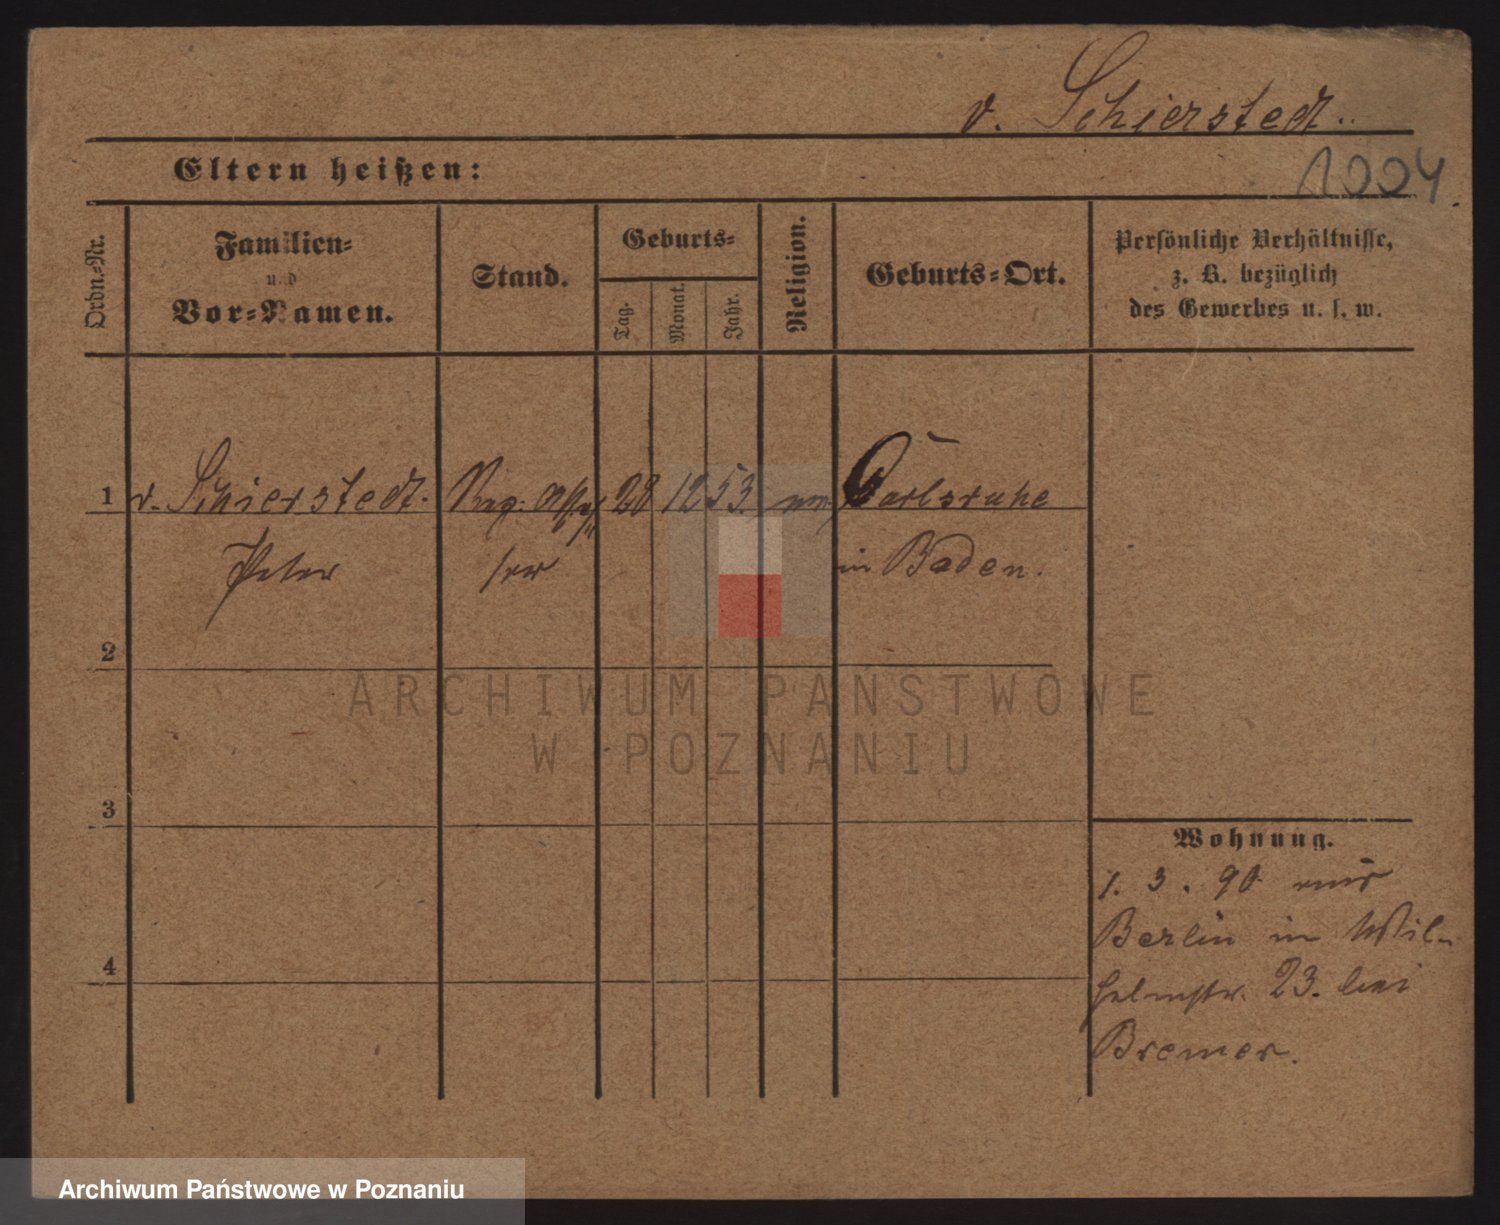 v. Schierstedt.
Eltern heißen:
1004
Ordn.-Nr.
Familien-
und
Vor-Namen.
Stand.
Geburts-
Tag.
Monat.
Jahr.
Religion.
Geburts-Ort.
Persönliche Verhältnisse,
z. B. bezüglich
des Gewerbes u. s. w.
1 v. Schierstedt. Reg. Asses 28 12 53 Carlsruhe
Peter sor in Baden.
2
3
4
Wohnung.
1. 3. 90 aus
Berlin in Wil-
helmstr. 23. bei
Bremer.
ARCHIWUM PAŃSTWOWE
W POZNANIU
Archiwum Państwowe w Poznaniu